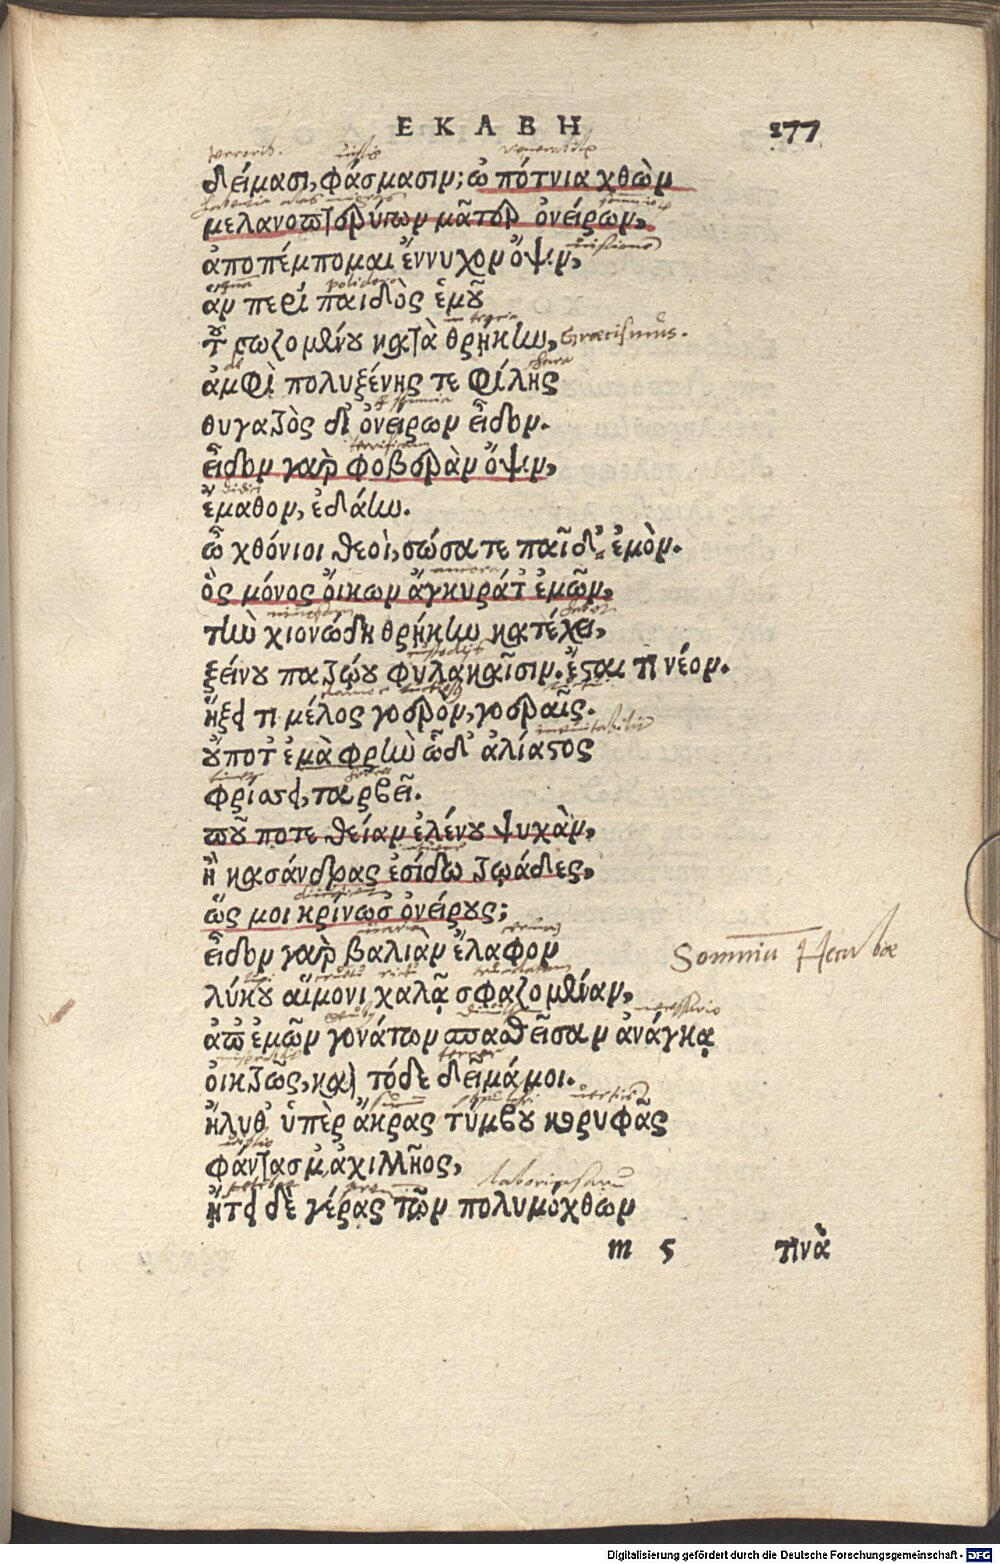 ΕΚΑΒΗ 177
terroris. visis venerabilis
δείμασι, φάσμασιν; ὦ πότνια χθὼν
μελανοπτερύγων μᾶτερ ὀνείρων,
visionem
ἀποπέμπομαι ἔννυχον ὄψιν,
polidoro
ἃν περὶ παιδὸς ἐμοῦ
τοῦ σωζομένου κατὰ θρῄκην, Graecismus.
ἀμφὶ πολυξένης τε φίλης
θυγατρὸς δι᾽ ὀνείρων εἶδον.
εἶδον γὰρ φοβερὰν ὄψιν,
didici
ἔμαθον, ἐδάην.
ὦ χθόνιοι θεοὶ, σώσατε παῖδ᾽ ἐμὸν.
ancora
ὃς μόνος οἴκων ἄγκυράτ᾽ ἐμῶν,
τὴν χιονώδη θρῄκην κατέχει,
ξείνου πατρῴου φυλακαῖσιν. ἔσται τι νέον.
ἥξει τι μέλος γοερὸν, γοεραῖς.
οὔποτ᾽ ἐμὰ φρὴν ὧδ᾽ ἀλίαστος
φρίσσει, ταρβεῖ.
ποῦ ποτε θείαν ἑλένου ψυχὰν,
ἢ κασάνδρας ἐσίδω τρῳάδες,
ὥς μοι κρίνωσ᾽ ὀνείρους;
εἶδον γὰρ βαλιὰν ἔλαφον Somniū Hecubae
λύκου αἵμονι χαλᾷ σφαζομέναν,
ἀπ᾽ ἐμῶν γονάτων σπασθεῖσαν ἀνάγκᾳ
terror
οἰκτρῶς, καὶ τόδε δεῖμά μοι.
ἤλυθ᾽ ὑπὲρ ἄκρας τύμβου κορυφᾶς
φάντασμ᾽ ἀχιλλῆος,
ᾔτει δὲ γέρας τῶν πολυμόχθων
m 5 τινὰ
Digitalisierung gefördert durch die Deutsche Forschungsgemeinschaft - DFG